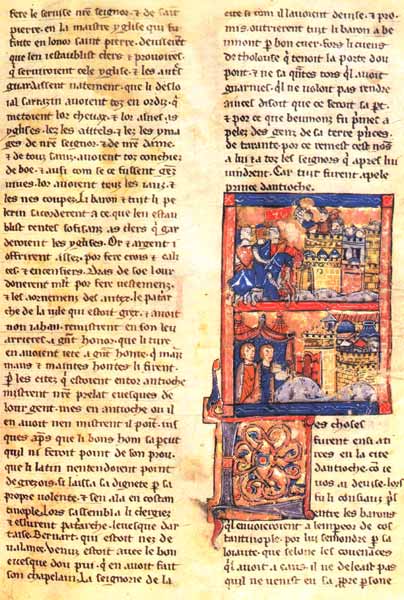 fere le servise nre seignor. & de saīt
pierre. en la maistre yglise qui fu
faite en lonor saint pierre. deviserēt
que len restablist clers & provoires.
q̄ serviroient cele yglise. & les autēs
gardassent natement. que li desloi
al sarrazin avoient toz en ordiz. q̄
metoient lor chevax. & lor asnes. as
yglises. lez les autels. & lez les yma
ges de nr̄e seignor. & de nr̄e dame.
& de touz sainz. avoient toz conchiez
de boe. & ausi com se ce fussent gez
vives. lor avoient touz les iauz. &
les nes coupez. Li baron & tuit li pe
lerin sacorderent a ce que len esta
blist rentes sofisanz as clers q̄ gar
deroient les yglises. Or & argent i
offrirent assez. por fere croiz & cali
ces. & encensiers. Dras de soie lour
donerent mlt por fere vestemenz.
& les aornemenz des autez. le patiar
che de la vile qui estoit grex. & avoit
non iahan. remistrent en son leu
arrieres. a gnt honor. que li ture
en avoient iete a gnt honte. q̄ mau
mainz & maintes hontes li firent.
p̄ les citez q̄ estoient entor antioche
mistrent nr̄e prelat evesques de
lour gent. mes en antioche ou il
en avoit nen mistrent il point. ius
ques ap̄s que li bons hom sa p̄cut
quil ni feroit point de son prou.
que li latin nentendoient point
de grezois. si laissa sa dignete p̄ sa
propre volente. & sen ala en costan
tinople. Lors sassembla li clergiez
& eslurent patiarche. levesque dar
taise. Bernart. qui estoit nez de
valance. venuz estoit avec le bon
evesque dou pui. q̄ en avoit fait
son chapelain. La seignorie de la
cite si com il lavoient devise. & pro
mis. outrierent tuit li baron a be
mont p̄ bon cuer. fors li cuens
de tholouse q̄ tenoit la porte dou
pont. & ne sa q̄ntes tors q̄l avoit
guarnies. q̄l ne voloit pas rendre
ainceis disoit que ce seroit sa p̄t.
& por ce que beumonz fu p̄mec a
pelez des genz de sa terre p̄nces.
de tarante. por ce remest cest nōs
a lui & a toz les seignors q̄ apres lui
vindrent. Car tuit furent apele
prince dantioche.
Les choses
furent ensi ati
rees en la cite
dantioche. cō ie
vos ai devise. lors
fu li consauz p̄s
entre les barons
q̄l envoieroient a lempeor de cos
tantinople. por lui semondre p̄ sa
loiaute. que selonc les covenāces
q̄l avoit a aus. il ne delaiast pas
quil ne venist en sa p̄pre p̄sone